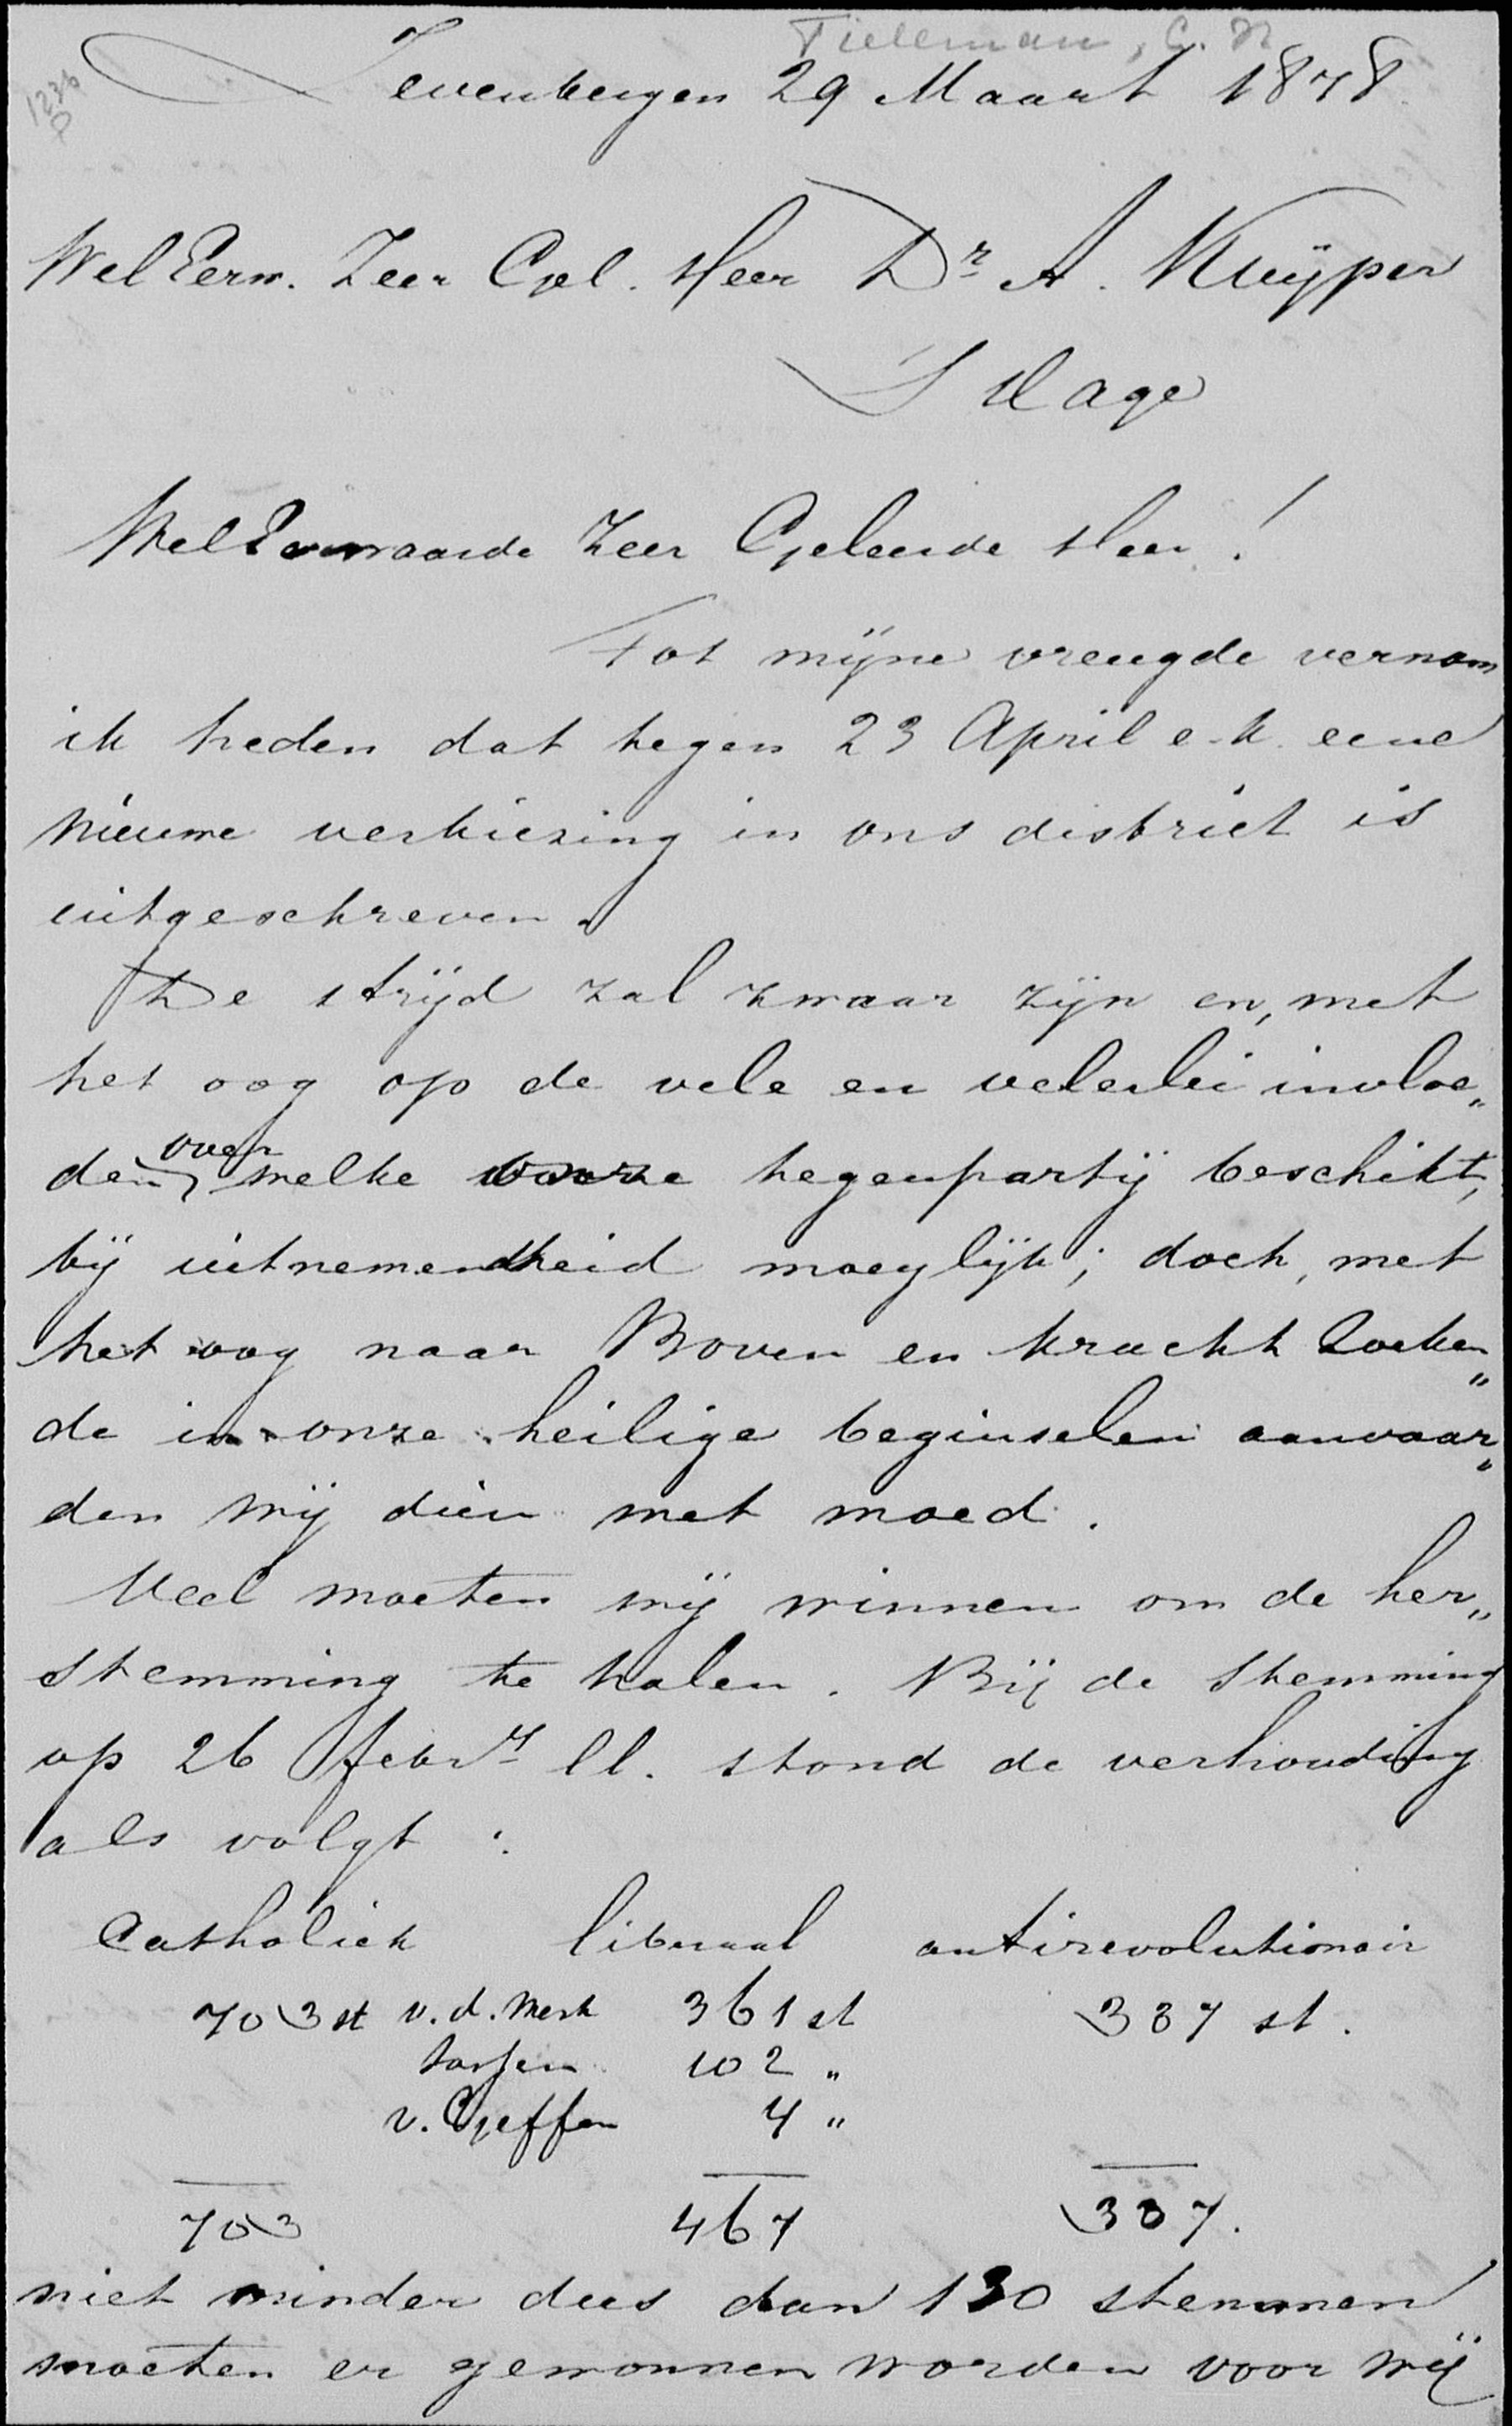 Tieleman, C. H
1236
P
Zevenbergen 29 Maart 1878.
WelEerw. Zeer Gel. Heer Dr A. Kuyper
S Hage
WelEerwaarde Zeer Geleerde Heer!
Tot mijne vreugde vernam
ik heden dat tegen 23 April e.k. eene
nieuwe verkiezing in ons district is
uitgeschreven.
De strijd zal zwaar zijn en, met
het oog op de vele en velerlei invloe„
den, over welke onze tegenpartij beschikt,
bij uitnemendheid moeylijk; doch, met
het oog naar Boven en kracht zoeken„
de in onze heilige beginselen aanvaar„
den wij dien met moed.
Veel moeten wij winnen om de her„
stemming te halen. Bij de stemming
op 26 febry ll. stond de verhouding
als volgt:
Catholiek liberaal antirevolutionair
703 st v. d. Merk 361 st 337 st.
102 „
v. Geffen 4 „
703 467 337.
niet minder dus dan 130 stemmen
moeten er gewonnen worden voor wij